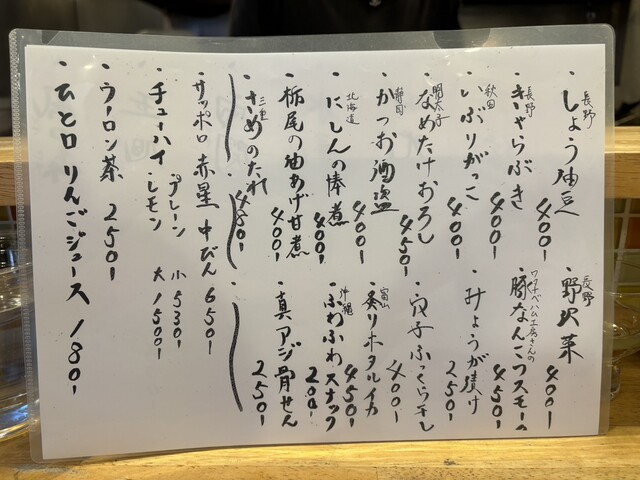 ・長野 しょうゆ豆 400-
・長野 きゃらぶき 400-
・秋田 いぶりがっこ 400-
・明太子なめたけおろし 450-
・静岡 かつお酒盗 400-
・北海道 にしんの棒煮 400-
・栃尾の油あげ甘煮 400-
・三重 さめのたれ 450-
・長野 野沢菜 400-
・ワタナベハム工房さんの 豚なんこつスモーク 450-
・みょうが漬け 250-
・穴子ふっくら干し 400-
・富山 炙りホタルイカ 450-
・沖縄 ふわふわスナック 200-
・真アジ骨せん 250-
・サッポロ赤星 中びん 650-
・チューハイ プレーン 小 530-
・レモン 大 1500-
・ウーロン茶 250-
・ひと口りんごジュース 180-